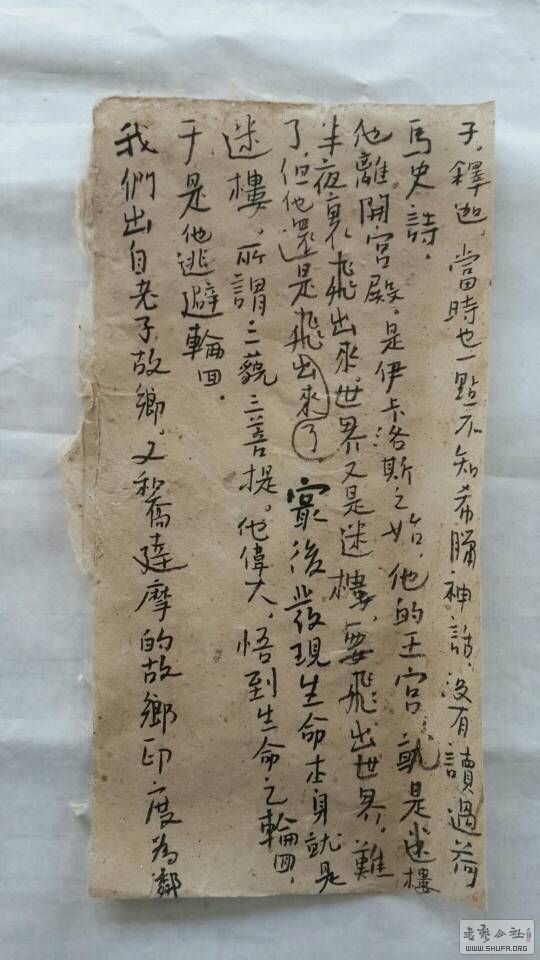 子。釋迦，當時也一點不知希臘神話，沒有讀過荷
馬史詩。
他離開宮殿，是伊卡洛斯之始，他的王宮就是迷樓
半夜裏飛出來。世界又是迷樓，要飛出世界。難
了，但他還是飛出來了。最後發現生命本身就是
迷樓。所謂三藐三菩提。他偉大，悟到生命之輪回，
于是他逃避輪回。
我們出自老子故鄉。又和喬達摩的故鄉印度為鄰
書藝公社
WWW.SHUFA.ORG